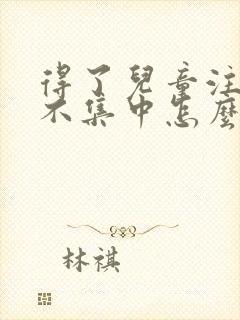 得了兒童注
不集中怎麼
林祺